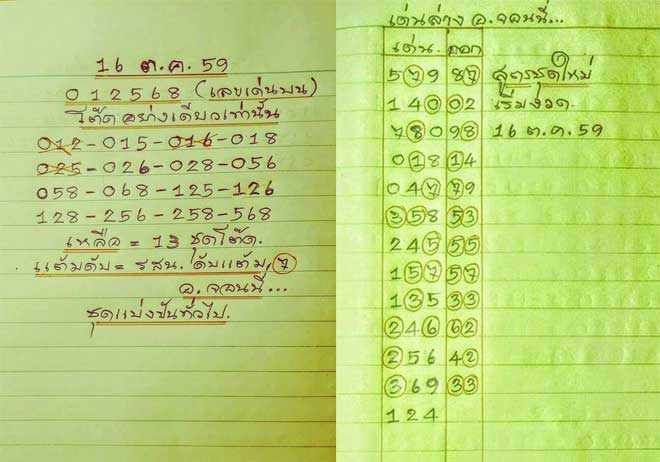 16 ต.ค. 59
012568 (เลขเด่นบน)
โต๊ดอย่างเดียวเท่านั้น
012-015-016-018
025-026-028-056
058-068-125-126
128-256-258-568
เหลือ = 13 ชุดโต๊ด.
แต้มดับ = รสน. ดับแต้ม, 7
อ. จอนนี่...
ชุดแบ่งปันทั่วไป.
เด่นล่าง อ. จอนนี่...
เด่น. ออก
579 87 สูตรชุดใหม่
140 02 เริ่มงวด.
780 98 16 ต.ค. 59
018 14
047 79
358 53
245 55
157 57
135 33
246 62
256 42
369 33
124